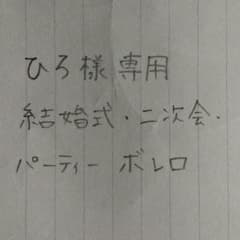 ひろ様専用
結婚式・二次会・
パーティー ボレロ